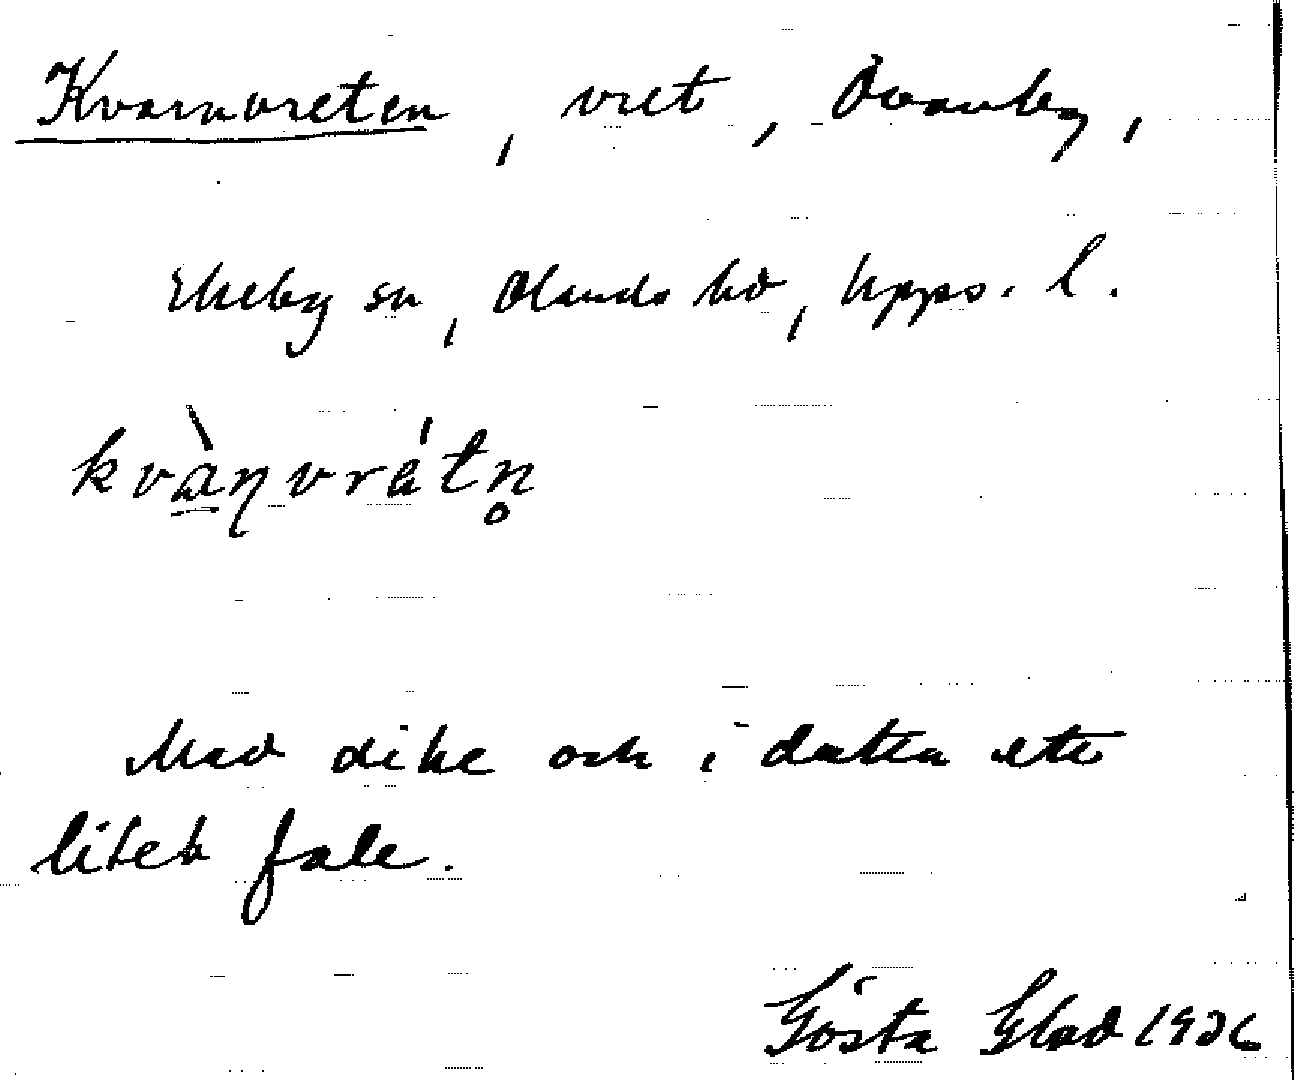 Kvarnvreten, vret, Ovanby,
Ekeby sn, Olands hd, Upps. l.
kvàɳvrátn̥
Med dike och i detta ett
litet fall.
Gösta Glad 1936